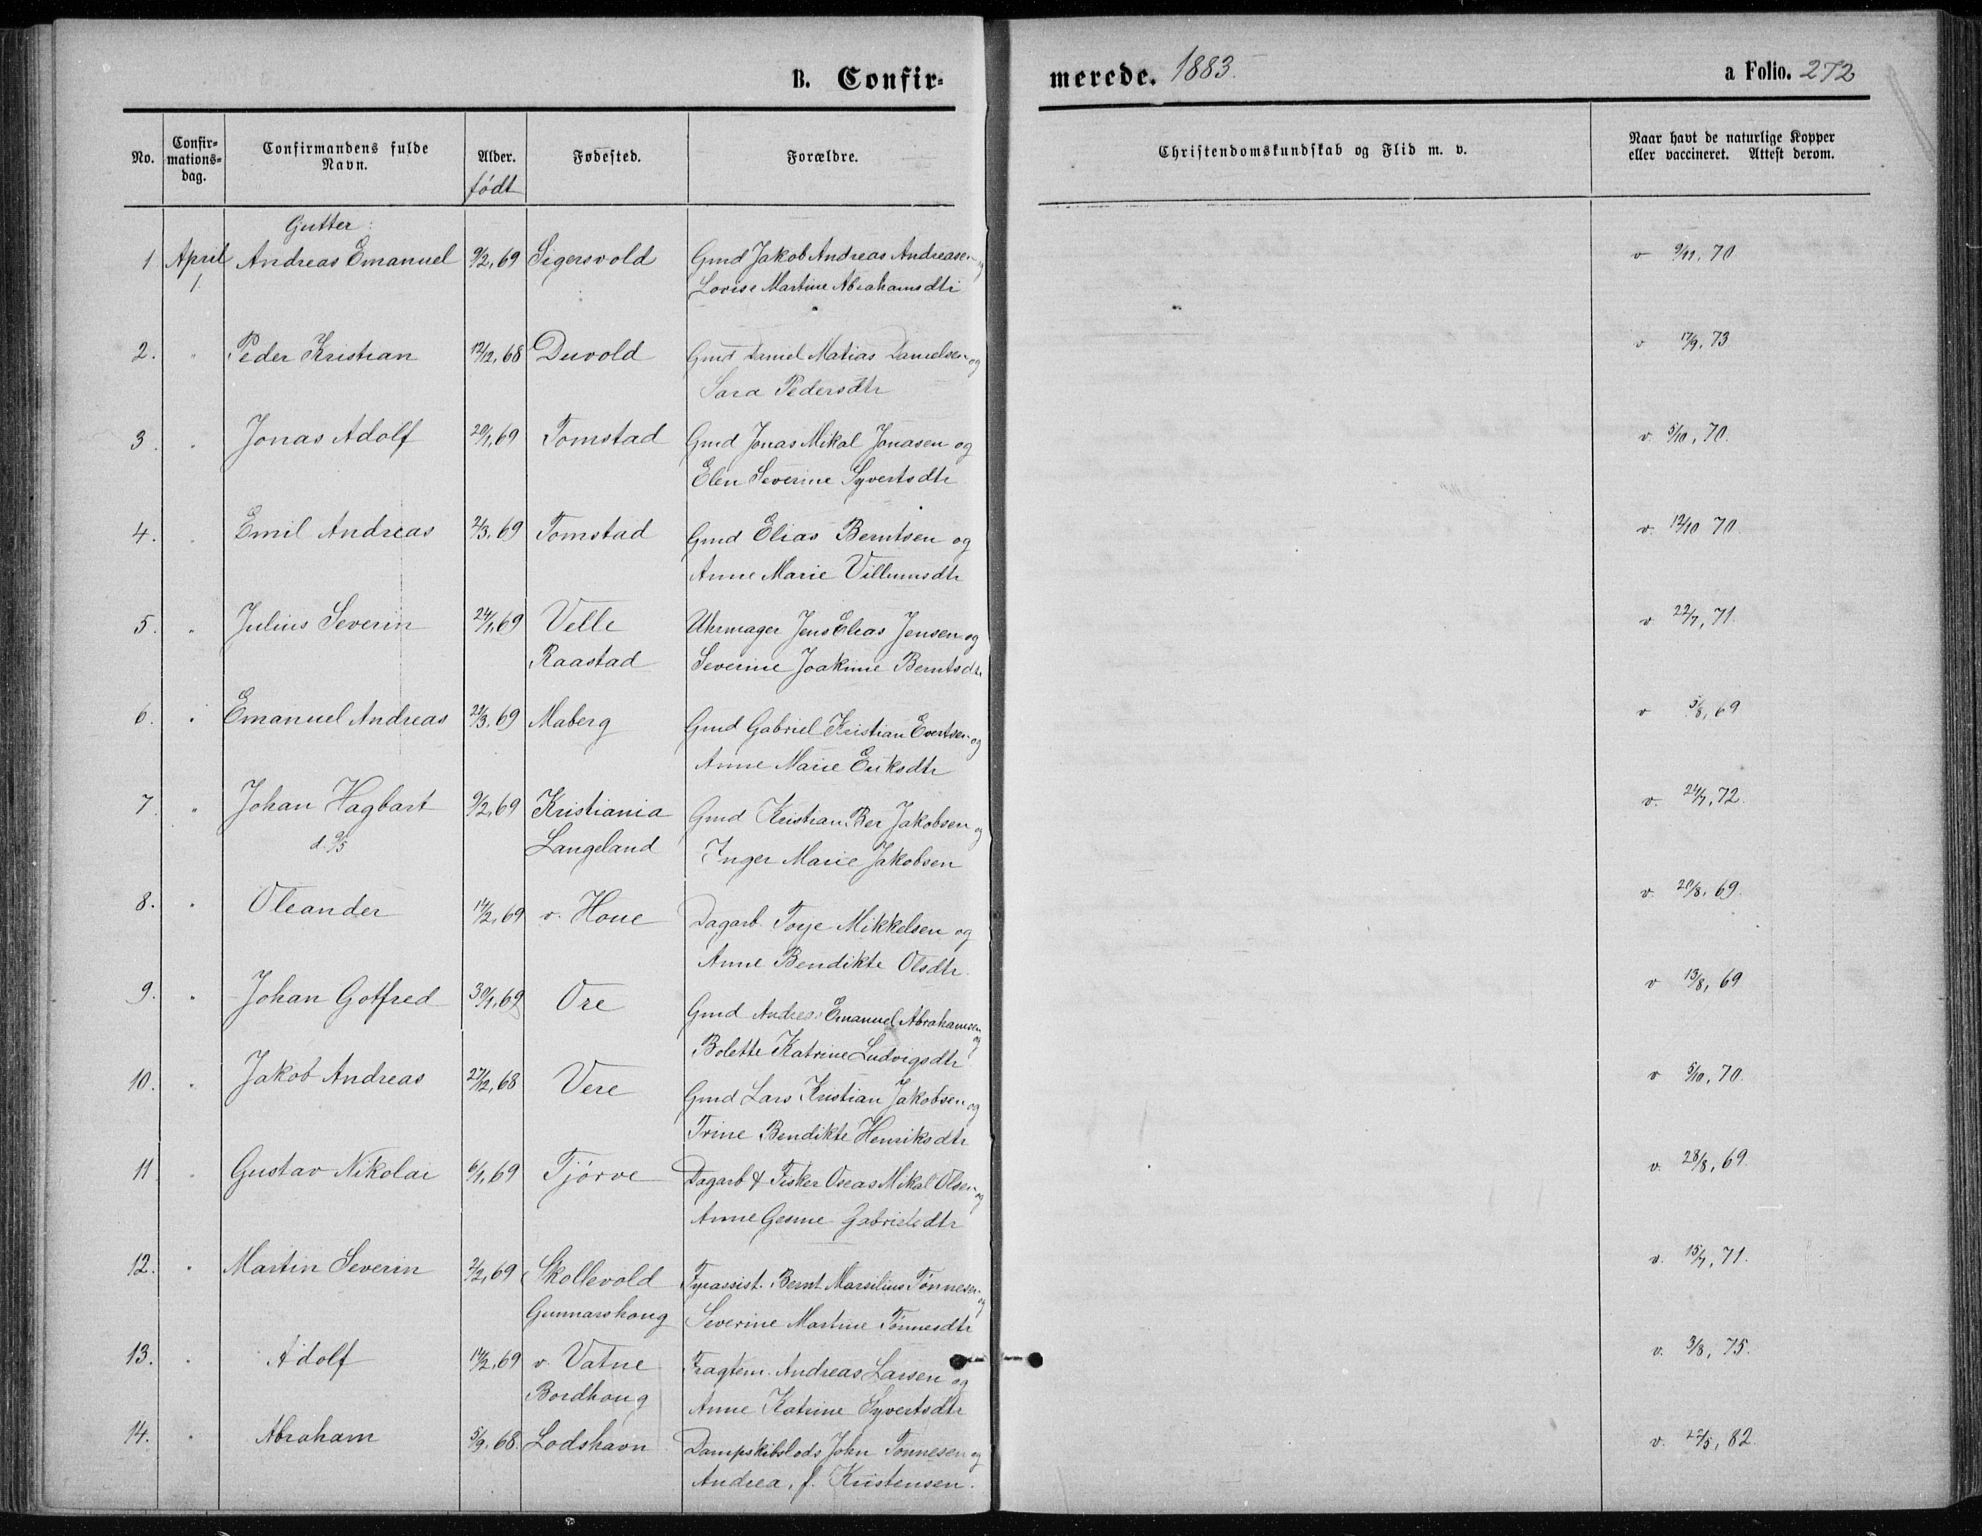 B. Confir-
merede. 1883.
a Folio. 272
No.
Confir-
mations-
dag.
Confirmandens fulde
Navn.
Alder.
født
Fødested.
Forældre.
Christendomskundskab og Flid m. v.
Naar havt de naturlige Kopper
eller vaccineret. Attest derom.
Gutter:
1 April Andreas Emanuel 9/2, 69 Sigersvold Gmd Jakob Andreas Andreasen og v 9/11, 70
1. Lovise Martine Abrahamsdtr
2. " Peder Kristian 12/12, 68 Duvold Gmd Daniel Matias Danielsen og v 17/9, 73
Sara Pedersdtr
3. " Jonas Adolf 20/1, 69 Tomstad Gmd Jonas Mikal Jonasen og v. 5/10, 70.
Elen Severine Syvertsdtr
4. " Emil Andreas 2/3, 69 Tomstad Gmd Elias Berntsen og v. 12/10 70.
Anne Marie Villumsdtr
5. " Julius Severin 24/1, 69 Velle Uhrmager Jens Elias Jensen og v. 22/7, 71.
Raastad Severine Joakime Berntsdtr
6. " Emanuel Andreas 22/3, 69 Maberg Gmd Gabriel Kristian Evertsen og v 5/8, 69
Anne Marie Eriksdtr
7 " Johan Hagbart 9/2, 69 Kristiania Gmd Kristian Ber Jakobsen og v. 24/7, 72.
d. 9/5 Langeland Inger Marie Jakobsen
8. " Oleander 14/2, 69 v. Houe Dagarb. Toye Mikkelsen og v. 20/8, 69.
Anne Bendikte Olsdtr.
9. " Johan Gotfred 30/1, 69 Ore Gmd Andres Emanuel Abrahamsen og v 13/8, 69
Bolette Katrine Ludvigsdtr
10. " Jakob Andreas 27/12, 68 Vere Gmd Lars Kristian Jakobsen og v 5/10, 70.
Trine Bendikte Henriksdtr
11 " Gustav Nikolai 6/1, 69 Tjørve Dagarb & Fisker Oseas Mikal Olsen og v. 28/8, 69.
Anne Gesine Gabrielsdtr
12. " Martin Severin 2/2, 69 Skollevold Fyrassist. Bernt Marsilius Tønnesen og v. 15/7, 71.
Gunnarshoug Severine Martine Tønnesdtr
13. " Adolf 14/2, 69 v. Vatne Fragtem. Andreas Larsen og v. 3/8, 75.
Bordhoug Anne Katrine Syvertsdtr
14. " Abraham 5/9, 68. Lodshavn Dampskibslods John Tønnesen og v. 22/5, 82.
Andrea, f. Kristensen.